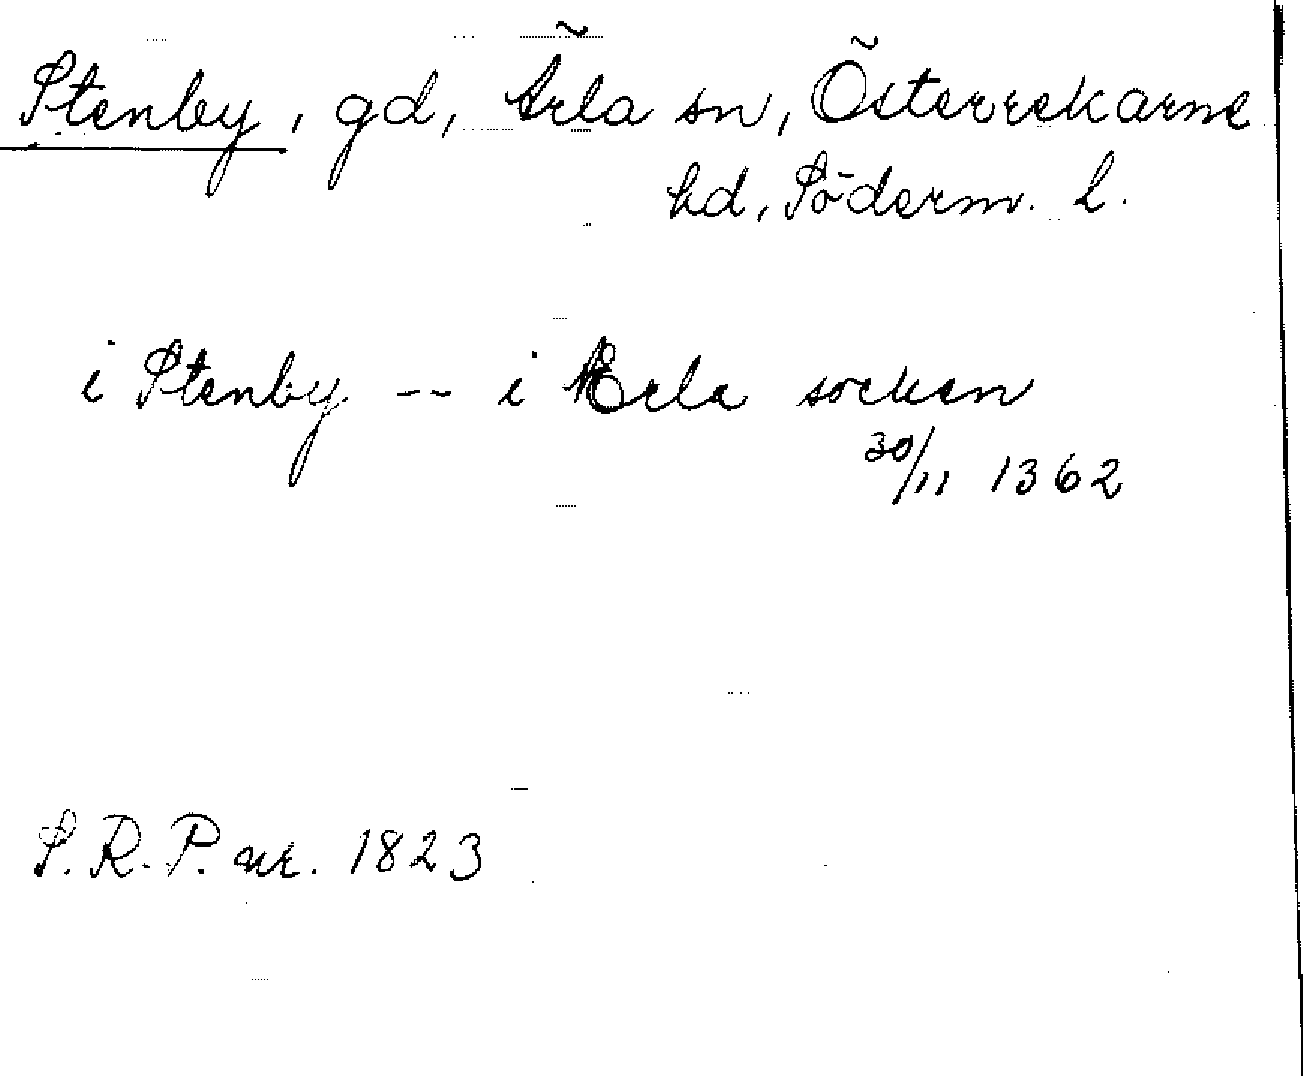 Stenby, gd, Ärla sn, Österrekarne
hd, Söderm. l.
i Stenby -- i Erla socken
30/11 1362
S. R. P. nr. 1823